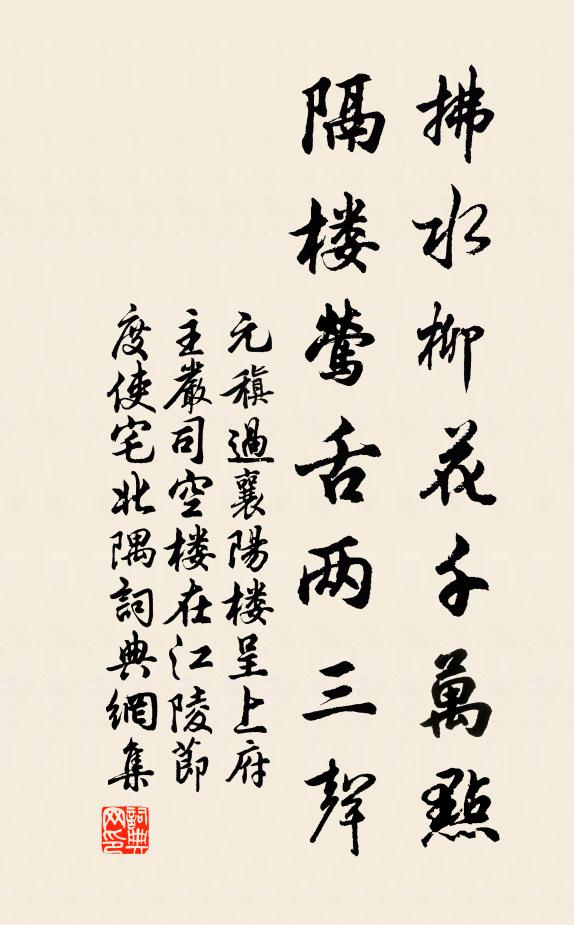 拂水柳花千萬點
隔楼鶯舌两三聲
元稹過襄陽楼呈上府
主嚴司空楼在江陵節
度使宅北隅詞典網集
詞典
网印